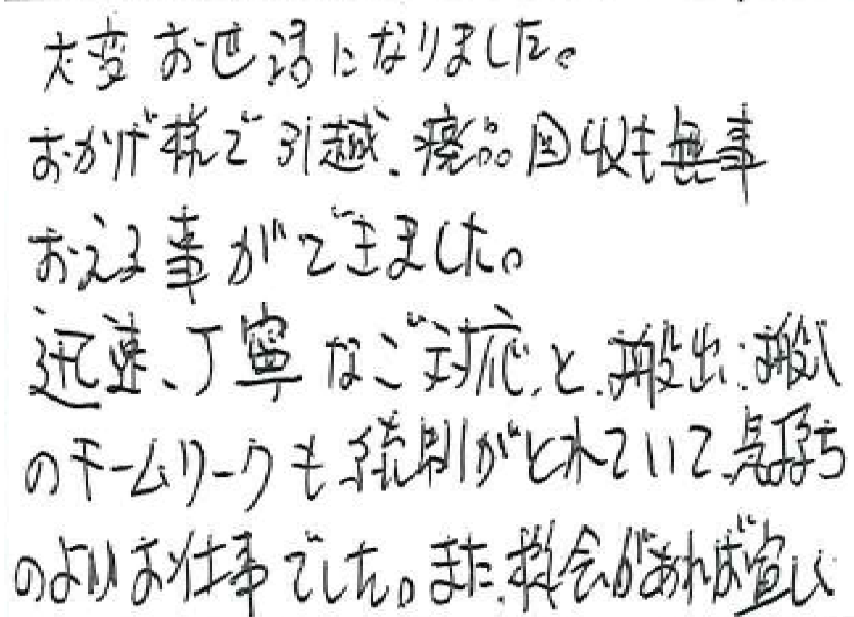 大変お世話になりました。
おかげ様で引越、廃品回収も無事
おえる事ができました。
迅速、丁寧なご対応と、搬出、搬入
のチームワークも統制がとれていて、気持ち
のよいお仕事でした。また、機会があれば宜しく